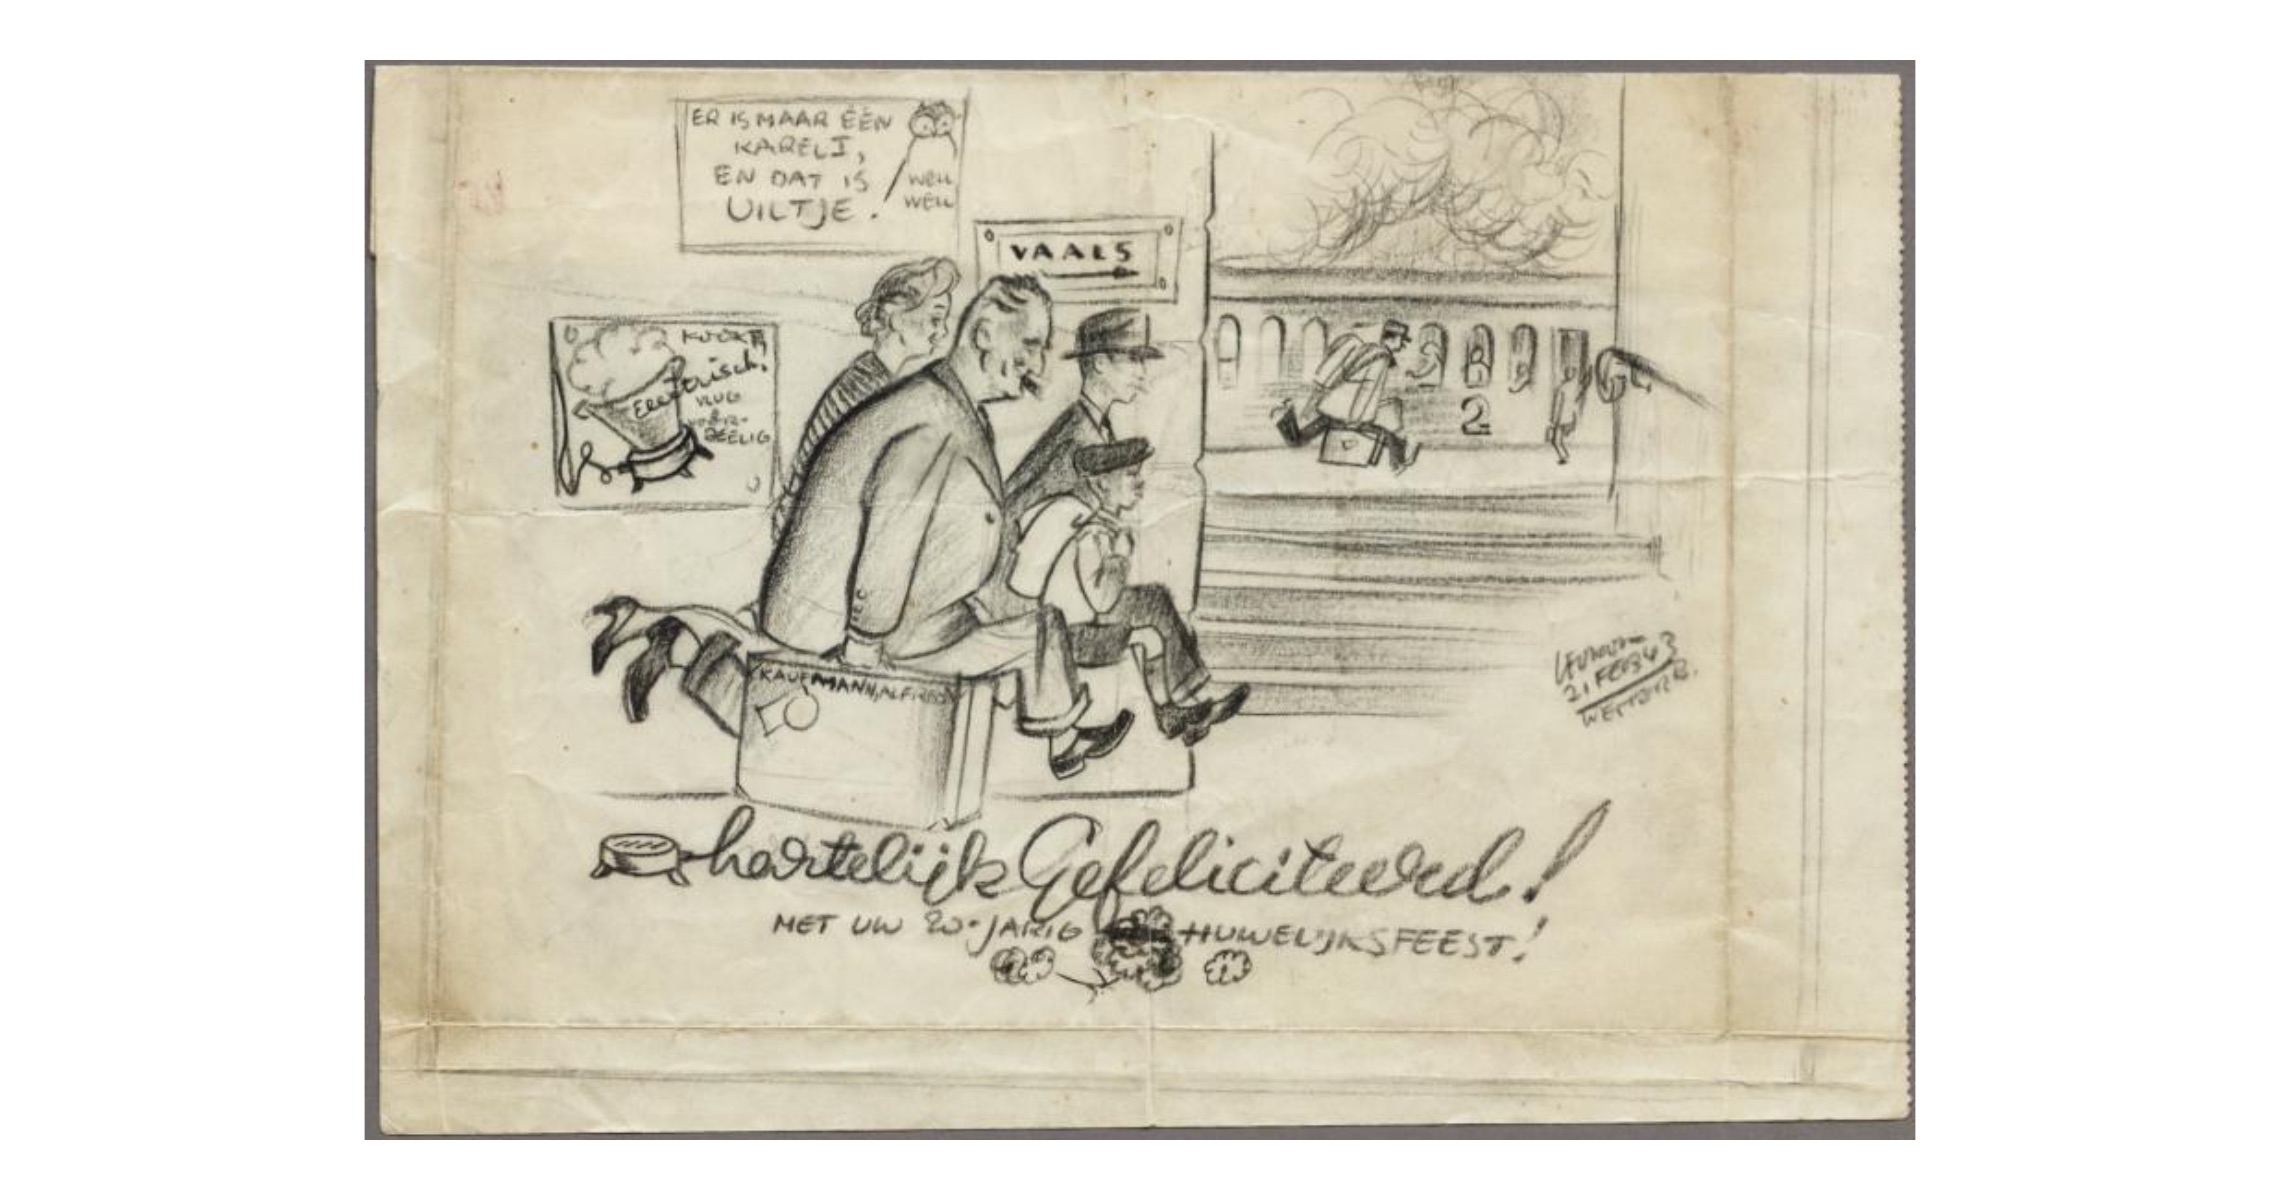 ER IS MAAR ÉÉN
KAREL I,
EN DAT IS
UILTJE.
WELL
WELL
VAALS
KOOKT
ELECTRISCH,
VLUG
VOOR-
DEELIG
KAUFMANN, ALFRED
2
21 FEB 43
WESTERB.
hartelijk Gefeliciteerd!
MET UW 20-JARIG HUWELIJKSFEEST!